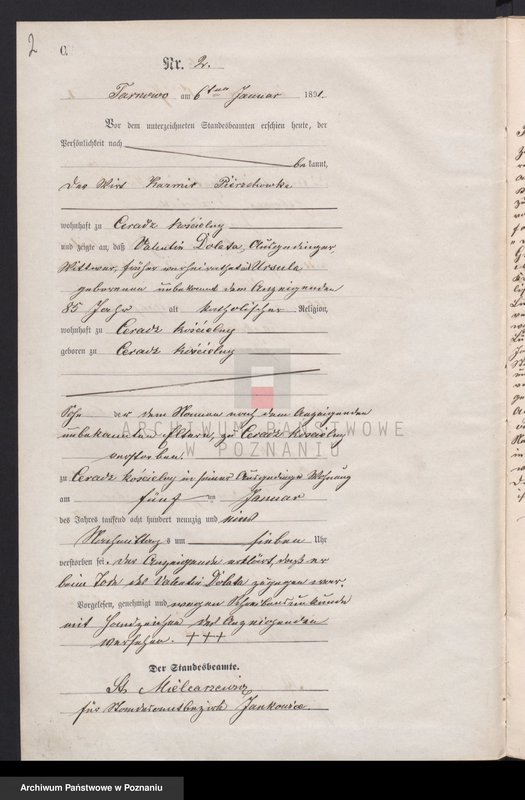 2
C.
Nr. 2.
Tarnowo am 6ten Januar 1891.
Vor dem unterzeichneten Standesbeamten erschien heute, der
Persönlichkeit nach
bekannt,
der Wirt Kasmir Pierzchowke
wohnhaft zu Ceradz Kościelny
und zeigte an, daß Valentin Dolata, Ausgedinger,
Wittwer, früher verheirathet mit Ursula
geborenen unbekannt dem Anzeigenden
85 Jahr alt katholischer Religion,
wohnhaft zu Ceradz Kościelny
geboren zu Ceradz Kościelny
Sohn der dem Namen nach dem Anzeigenden
unbekannten Eltern, zu Ceradz Kościelny
verstorben,
zu Ceradz Kościelny in seiner Ausgedinger Wohnung
am fünf ten Januar
des Jahres tausend acht hundert neunzig und eins
Nachmittags um sieben Uhr
verstorben sei. Der Anzeigende erklärt daß er
beim Tode des Valentin Dolata zugegen war.
Vorgelesen, genehmigt und wegen Schreibensunkunde
mit Handzeichen des Anzeigenden
versehen. +++
Der Standesbeamte.
St. Mielcarzewicz
für Standesamtsbezirk Jankowice.
ARCHIWUM PAŃSTWOWE
W POZNANIU
Archiwum Państwowe w Poznaniu